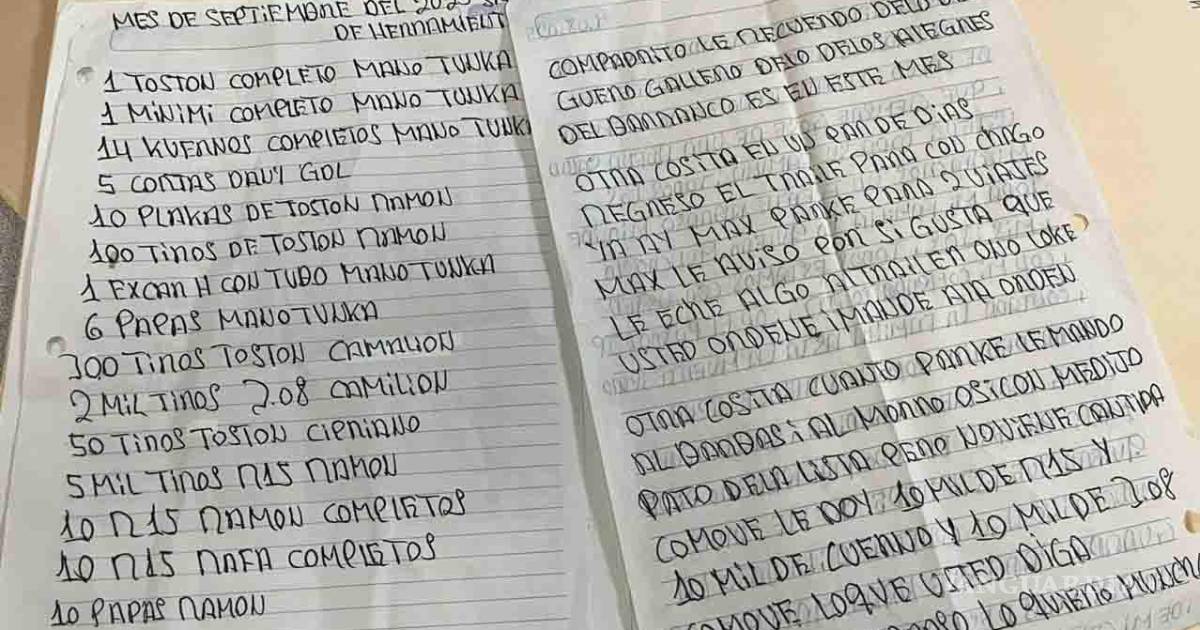 MES DE SEPTIEMBRE DEL
DE HERRAMIENT
1 TOSTON COMPLETO MANO TUNKA
1 MINIMI COMPLETO MANO TUNKA
14 KUERNOS COMPLETOS MANO TUNKA
5 CONTAS DAVY GOL
10 PLAKAS DE TOSTON RAMON
100 TIROS DE TOSTON RAMON
1 EXCAR H CON TUBO MANO TUNKA
6 PAPAS MANO TUNKA
300 TIROS TOSTON CAMALION
2 MIL TIROS 7.08 CAMILION
50 TIROS TOSTON CIPRIANO
5 MIL TIROS R15 RAMON
10 R15 RAMON COMPLETOS
10 R15 RAFA COMPLETOS
10 PAPAS RAMON
COMPADRITO LE RECUERDO DELO
GUERO GALLERO DELO DELOS ALEGRES
DEL BARRANCO ES EN ESTE MES
OTRA COSITA EN UN PAR DE DIAS
REGRESO EL TRAILE PARA CON CHAGO
MAX PARKE PARA 2 VIAJES
MAX LE AVISO POR SI GUSTA QUE
LE ECHE ALGO AL TRAILER ONO LOKE
USTED ORDENE I MANDE ALA ORDEN
OTRA COSITA CUANTO PARKE LE MANDO
AL BARBAS I AL MORRO OSICON MEDIJO
PATO DELA LISTA PERO NOVIENE CANTIDA
COMOVE LE DOY 10 MIL DE R15 Y
10 MIL DE CUERNO Y 10 MIL DE 7.08
COMOVE LOQUE USTED DIGA
LO QUIERO MUNCH